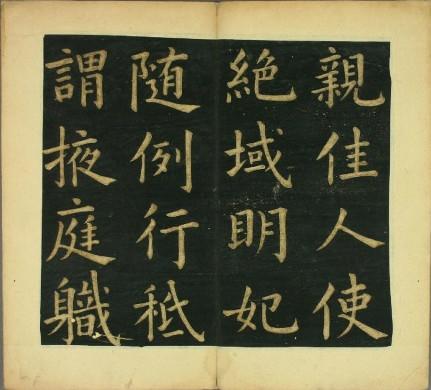 親佳人使
絶域明妃
随例行秪
謂掖庭軄